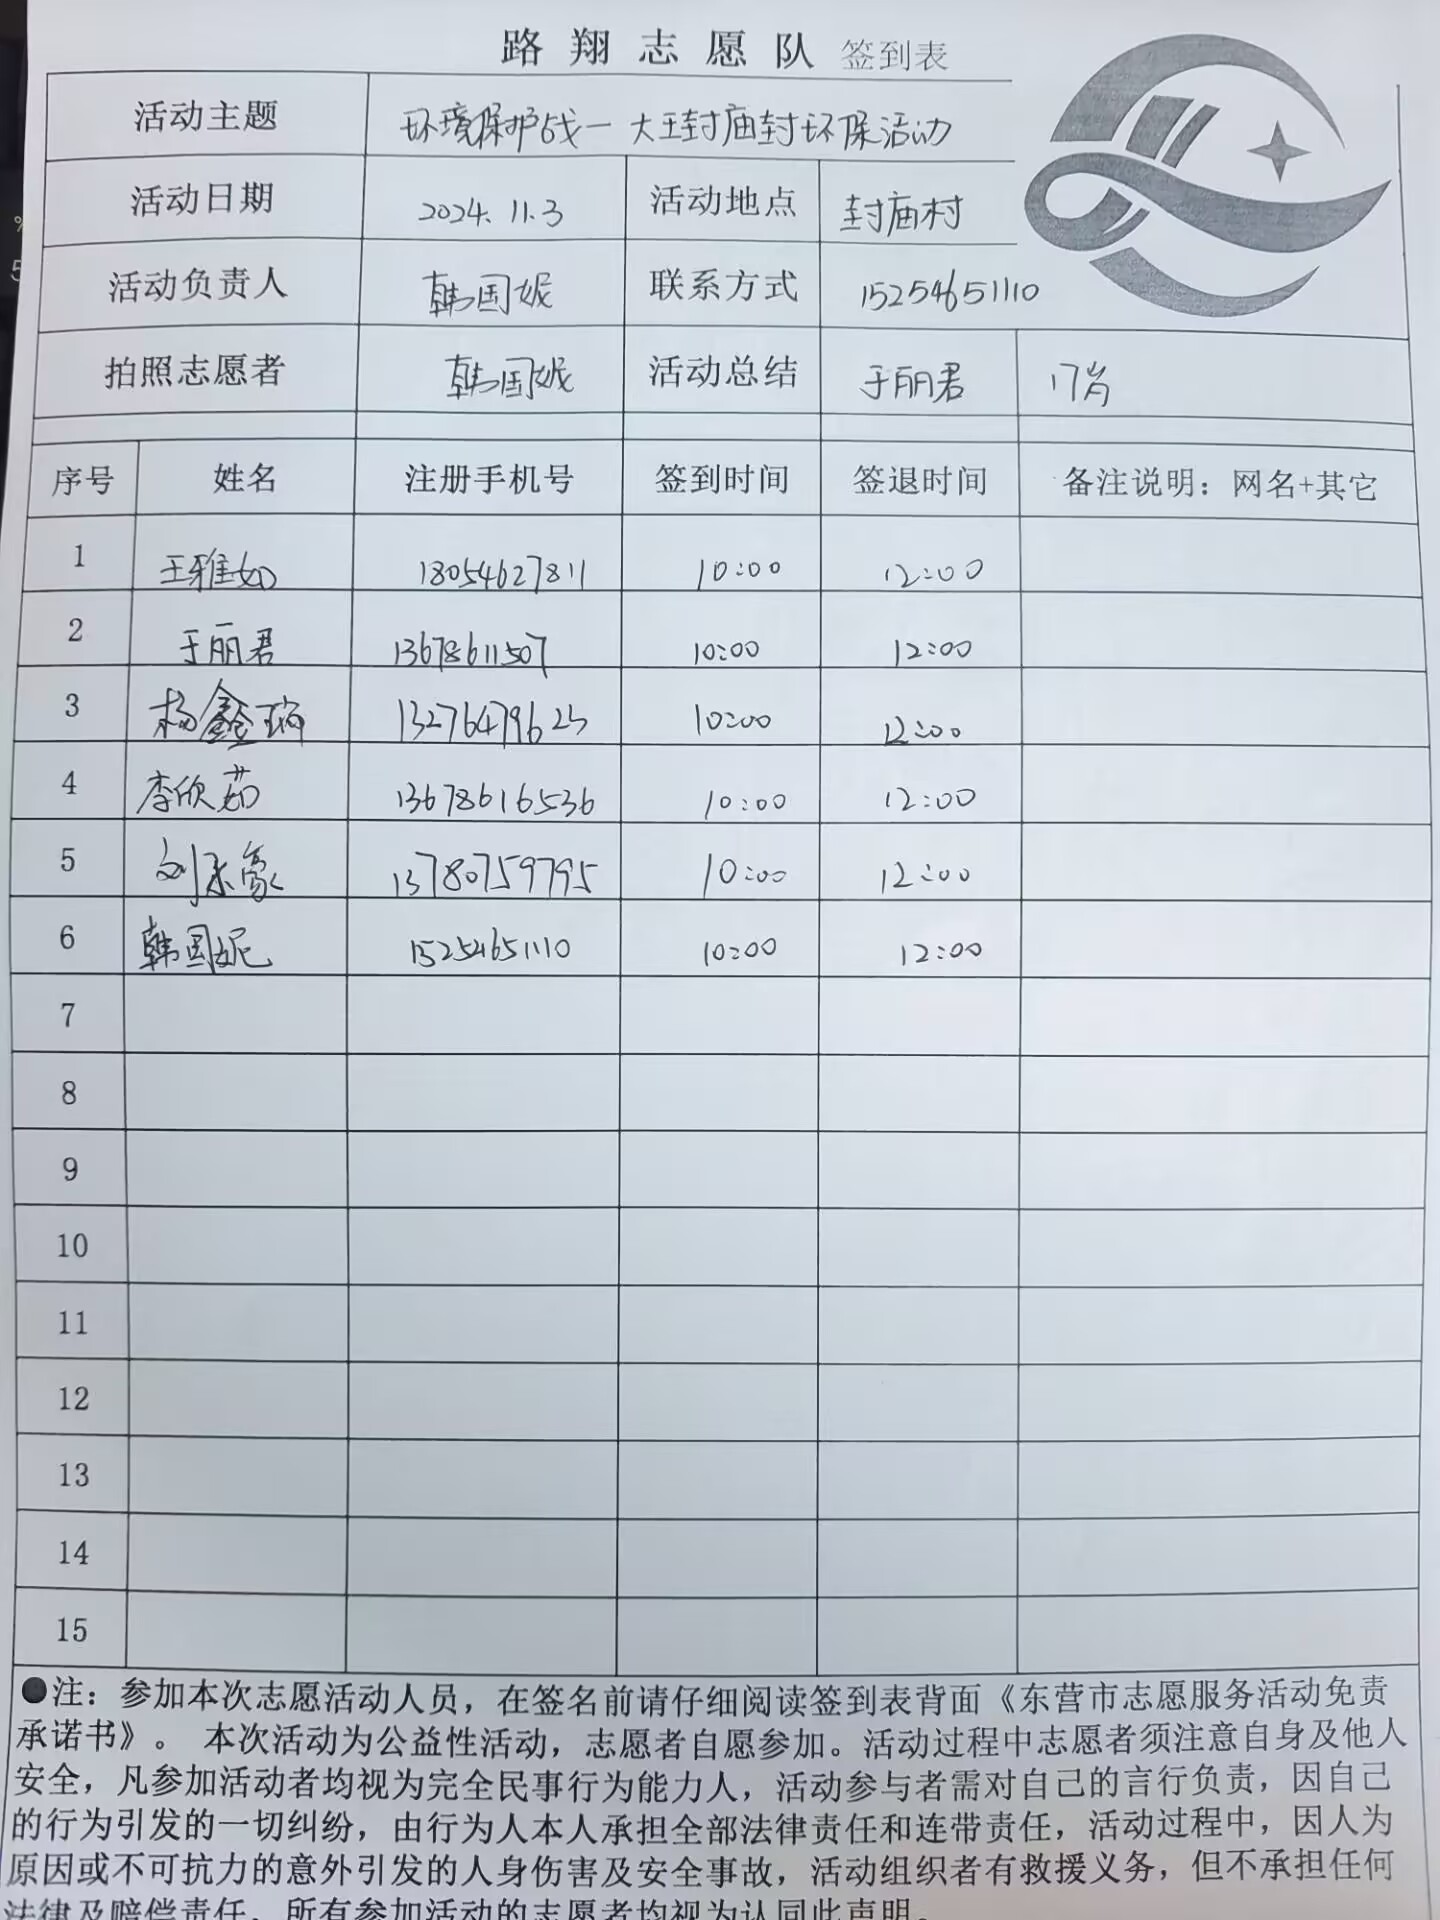 路翔志愿队 签到表
活动主题 环境保护战一大王封庙封环保活动
活动日期 2024.11.3 活动地点 封庙村
活动负责人 韩国妮 联系方式 15254651110
拍照志愿者 韩国妮 活动总结 于丽君
序号 姓名 注册手机号 签到时间 签退时间 备注说明：网名+其它
1 王雅如 18054627811 10:00 12:00
2 于丽君 13678611507 10:00 12:00
3 杨鑫瑞 13276479623 10:00 12:00
4 李欣茹 13678616536 10:00 12:00
5 刘 豪 13780759795 10:00 12:00
6 韩国妮 15254651110 10:00 12:00
7
8
9
10
11
12
13
14
15
●注：参加本次志愿活动人员，在签名前请仔细阅读签到表背面《东营市志愿服务活动免责
承诺书》。 本次活动为公益性活动，志愿者自愿参加。活动过程中志愿者须注意自身及他人
安全，凡参加活动者均视为完全民事行为能力人，活动参与者需对自己的言行负责，因自己
的行为引发的一切纠纷，由行为人本人承担全部法律责任和连带责任，活动过程中，因人为
原因或不可抗力的意外引发的人身伤害及安全事故，活动组织者有救援义务，但不承担任何
法律及赔偿责任。所有参加活动的志愿者均视为认同此声明。